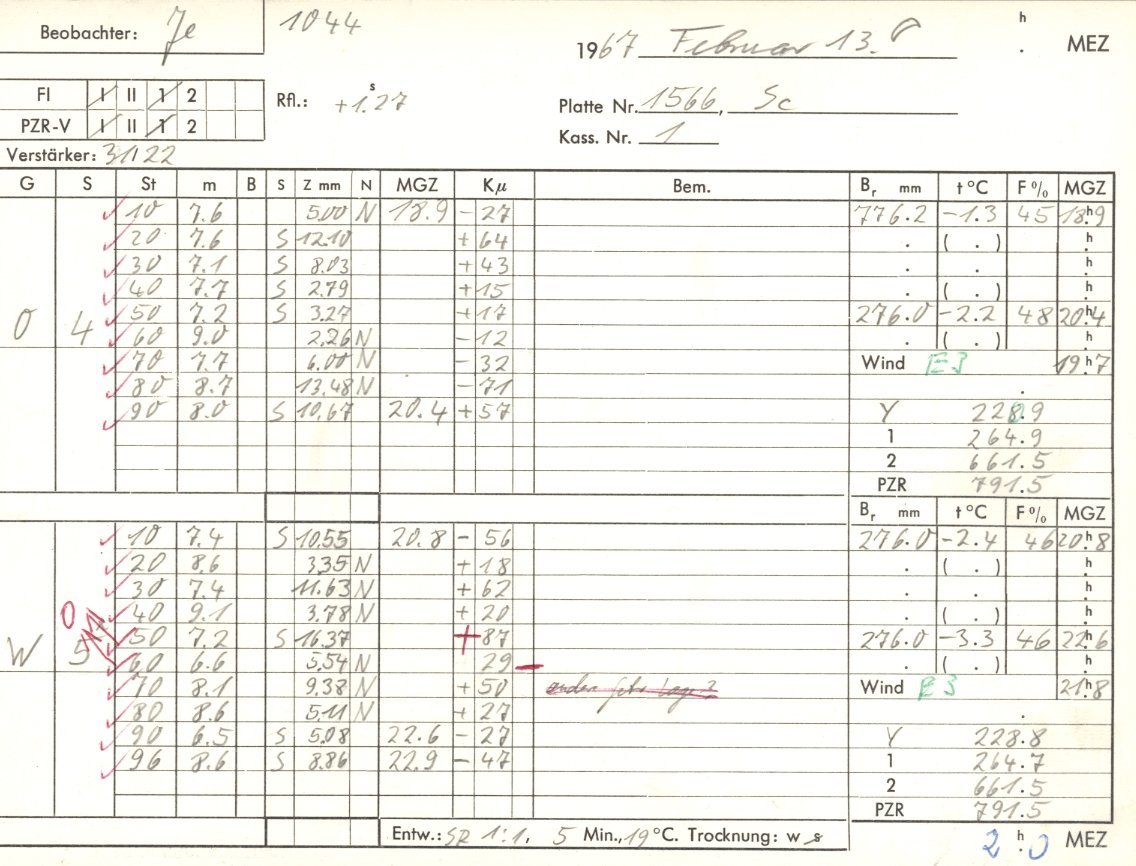 Beobachter: Je 1044
1967 Februar 13. h . MEZ
FI I II 1 2 Rfl.: +1.27 s
PZR-V I II 1 2 Platte Nr. 1566, Sc
Kass. Nr. 1
Verstärker: 31/22
G S St m B S Z mm N MGZ Kμ Bem. Br mm t °C F % MGZ
10 7.6 5.00 N 18.9 - 27 776.2 -1.3 45 18h9
20 7.6 S 12.10 + 64 . ( . ) h
30 7.1 S 8.03 + 43 . . h
40 7.7 S 2.79 + 15 . ( . ) h
O 4 50 7.2 S 3.27 + 17 276.0 -2.2 48 20h4
60 9.0 2.26 N - 12 . ( . ) h
70 7.7 6.00 N - 32 Wind E3 19h7
80 8.7 13.48 N - 71 .
90 8.0 S 10.67 20.4 + 57 Y 228.9
1 264.9
2 661.5
PZR 791.5
Br mm t °C F % MGZ
10 7.4 S 10.55 20.8 - 56 276.0 -2.4 46 20h8
20 8.6 3.35 N + 18 . ( . ) h
30 7.4 11.63 N + 62 . . h
O 40 9.1 3.78 N + 20 . ( . ) h
W 5 50 7.2 S 16.37 + 87 276.0 -3.3 46 22h6
60 6.6 5.54 N 29 - . ( . ) h
70 8.1 9.38 N + 50 Wind E3 21h8
80 8.6 5.11 N + 27 .
90 6.5 S 5.08 22.6 - 27 Y 228.8
96 8.6 S 8.86 22.9 - 47 1 264.7
2 661.5
PZR 791.5
Entw.: SR 1:1, 5 Min., 19 °C. Trocknung: w s 2 h 0 MEZ